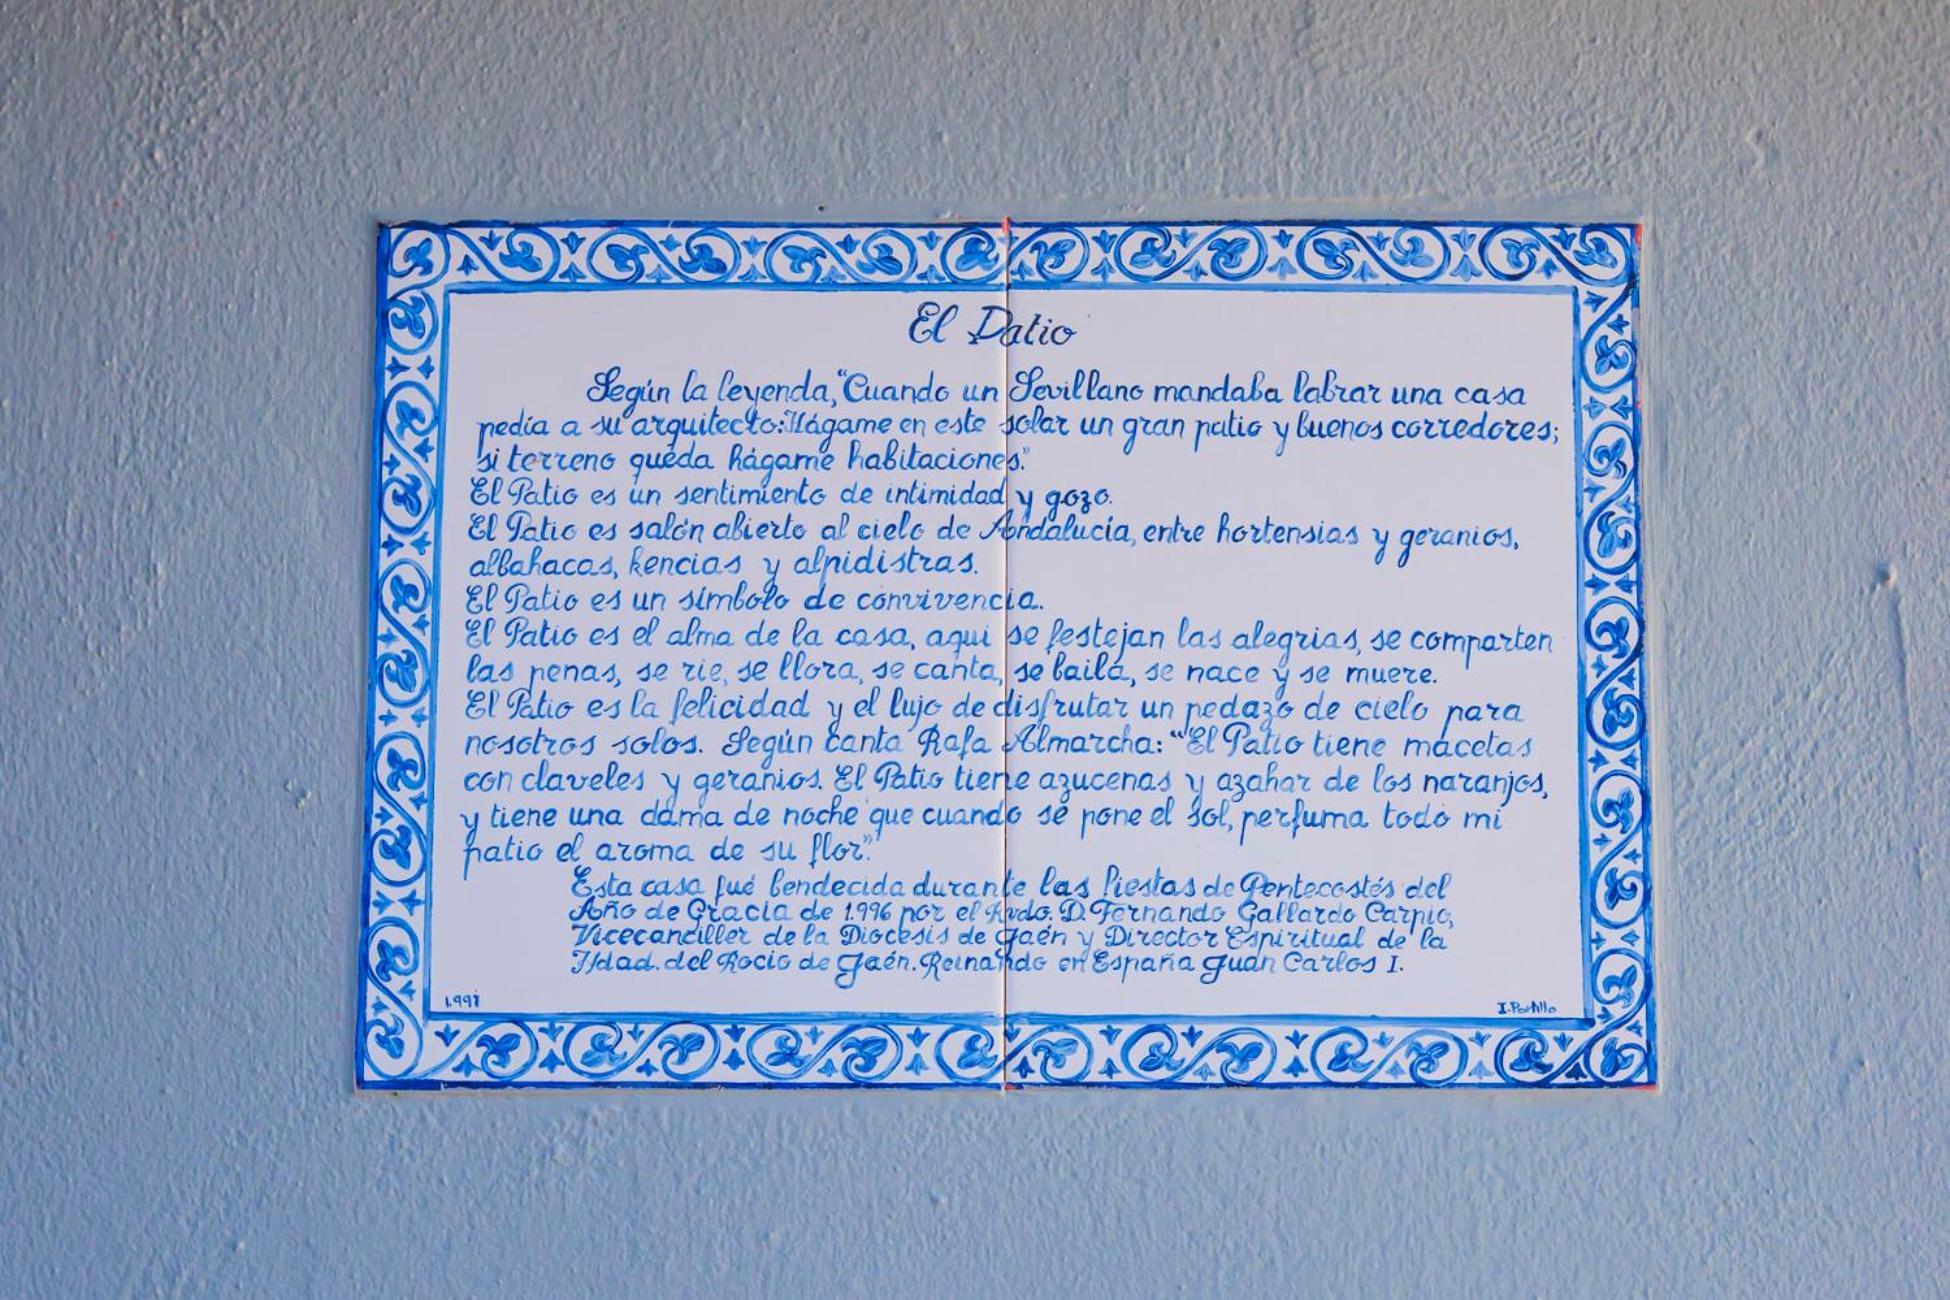 El Patio
Según la leyenda, "Cuando un Sevillano mandaba labrar una casa
pedía a su arquitecto: Hágame en este solar un gran patio y buenos corredores;
si terreno queda hágame habitaciones."
El Patio es un sentimiento de intimidad y gozo.
El Patio es salón abierto al cielo de Andalucía, entre hortensias y geranios,
albahacas, kencias y alpidistras.
El Patio es un símbolo de convivencia.
El Patio es el alma de la casa, aquí se festejan las alegrias, se comparten
las penas, se rie, se llora, se canta, se baila, se nace y se muere.
El Patio es la felicidad y el lujo de disfrutar un pedazo de cielo para
nosotros solos. Según canta Rafa Almarcha: "El Patio tiene macetas
con claveles y geranios. El Patio tiene azucenas y azahar de los naranjos,
y tiene una dama de noche que cuando se pone el sol, perfuma todo mi
patio el aroma de su flor."
Esta casa fué bendecida durante las fiestas de Pentecostés del
Año de Gracia de 1.996 por el Rvdo. D. Fernando Gallardo Carpio,
Vicecanciller de la Diocesis de Jaén y Director Espiritual de la
Hdad. del Rocio de Jaén. Reinando en España Juan Carlos I.
I. Portillo